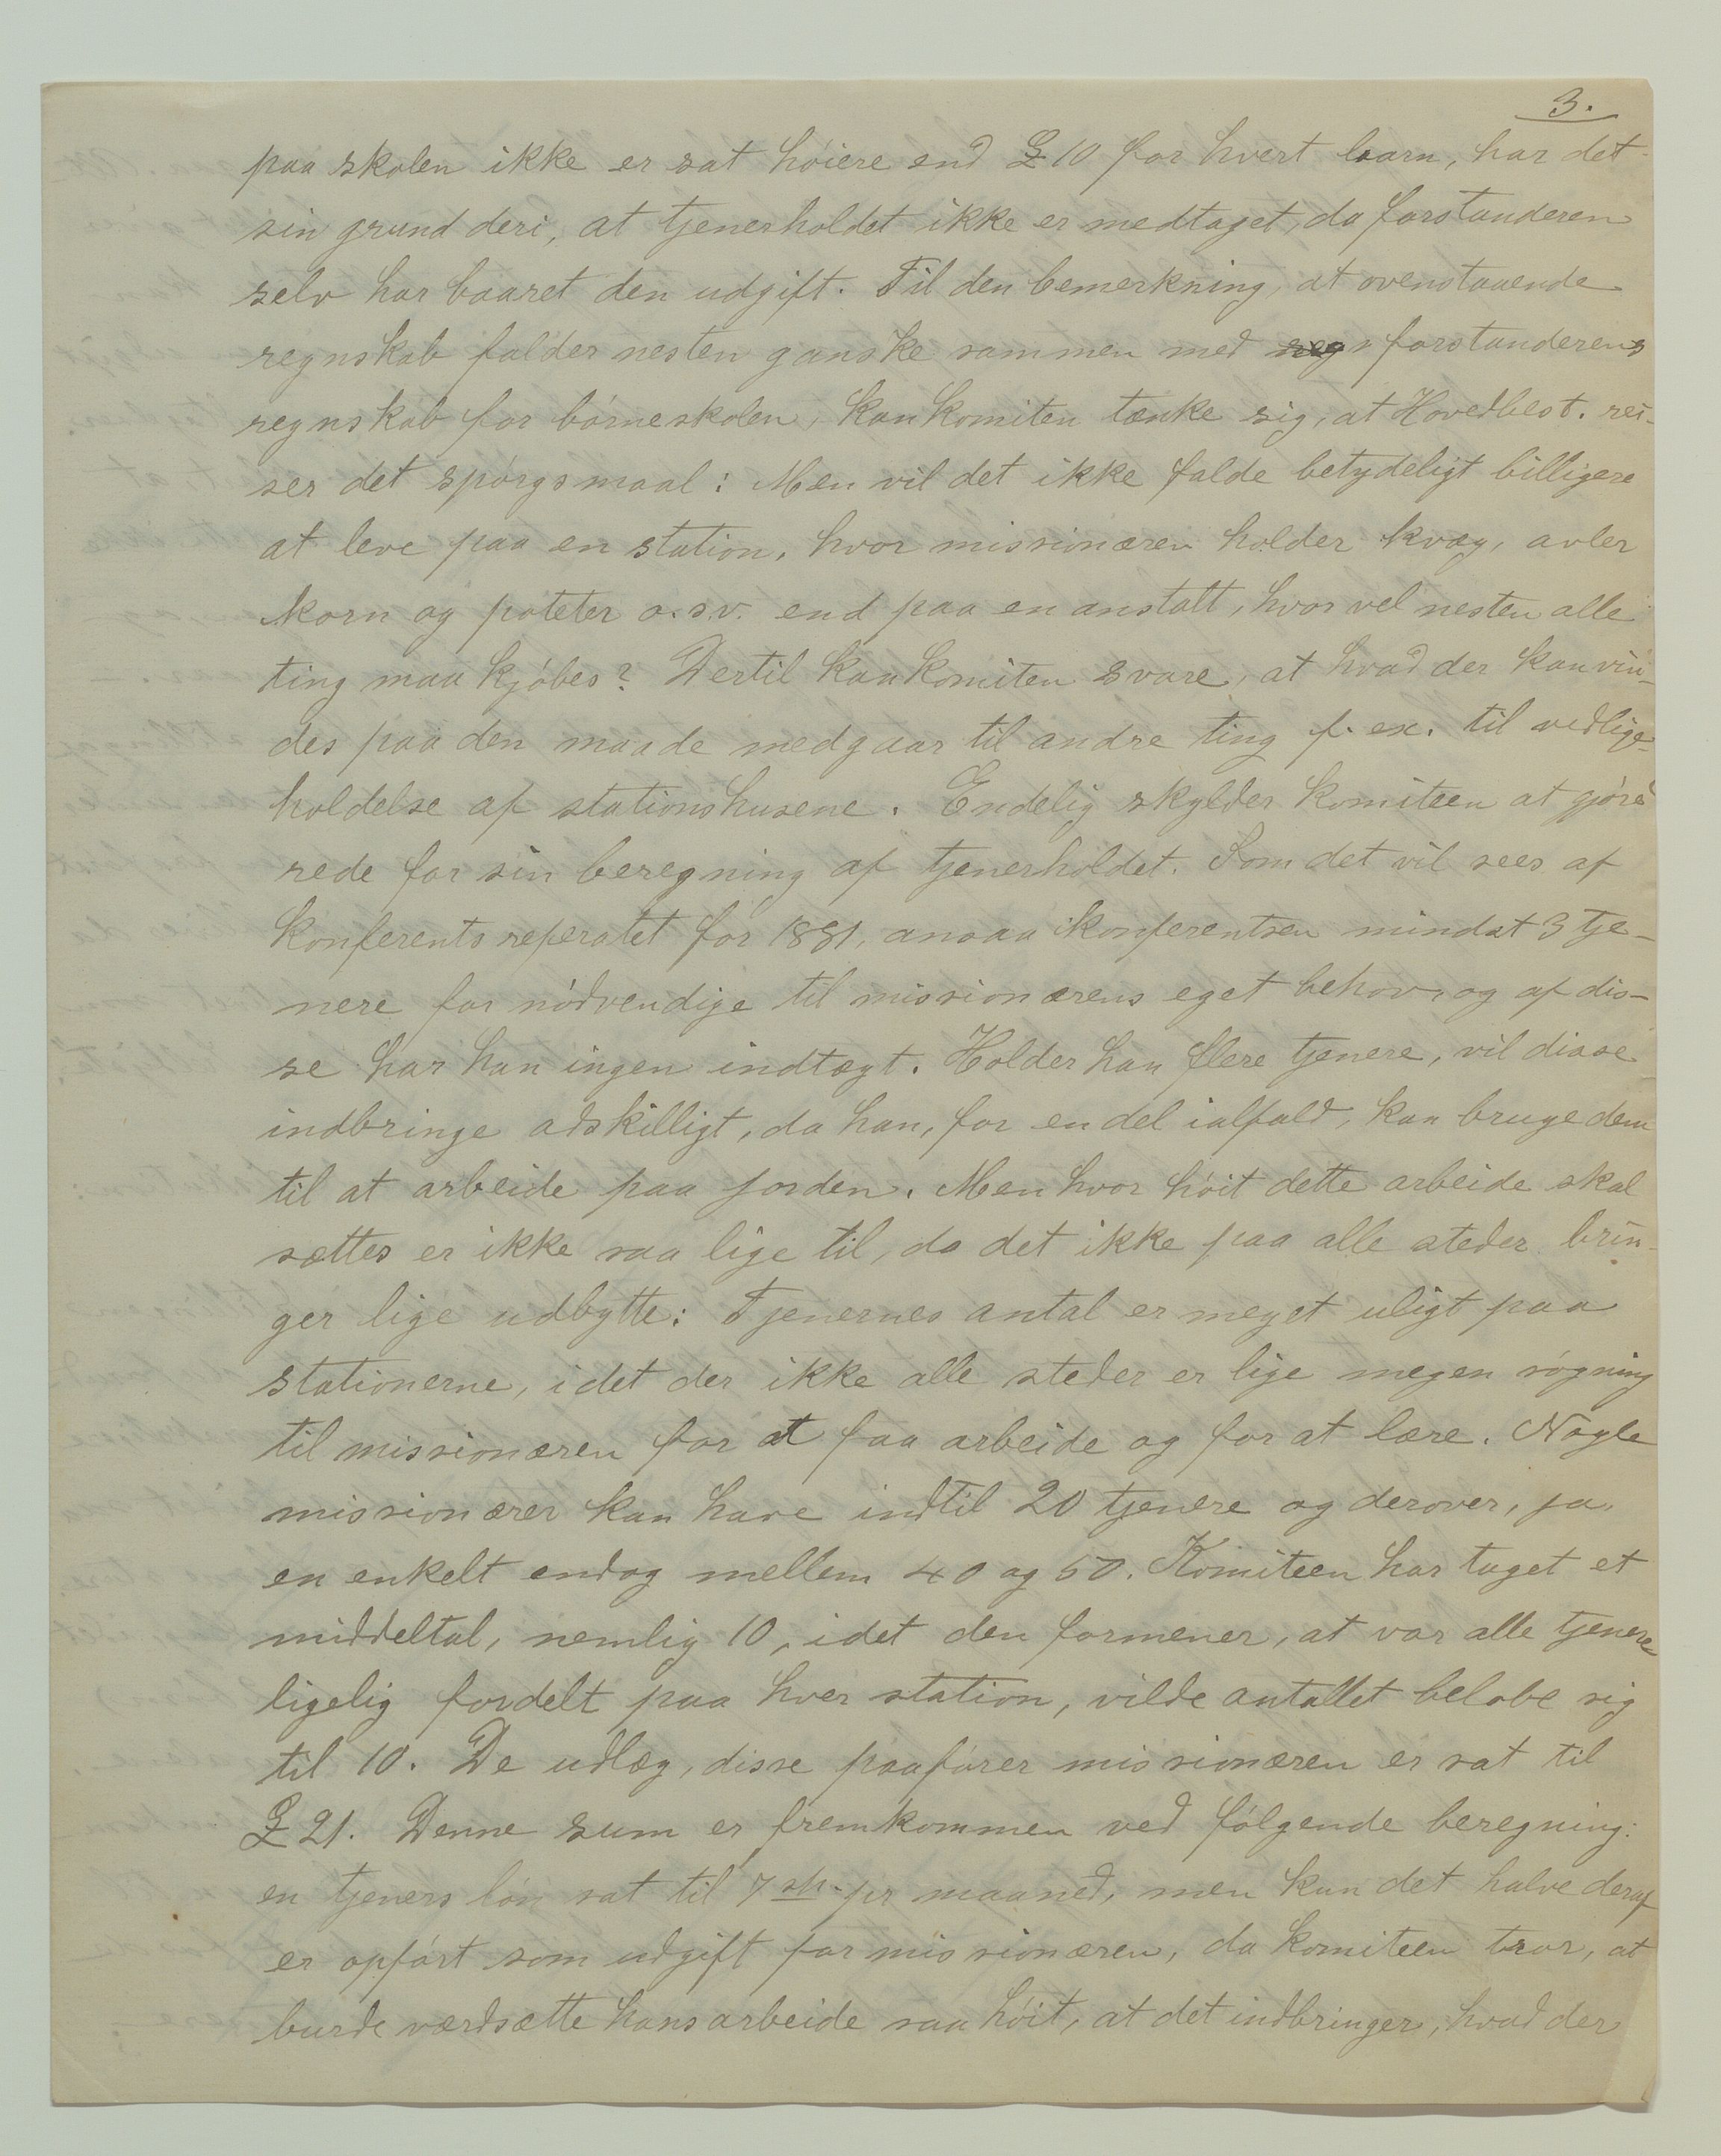 3.
paa skolen ikke er sat høiere end £ 10 for hvert barn, har det
sin grund deri, at tjenerholdet ikke er medtaget, da forstanderen
selv har baaret den udgift. Til den bemerkning, at ovenstaaende
regnskab falder nesten ganske sammen med forstanderens
regnskab for børneskolen, kan komiten tænke sig, at Hovedbest. rei-
ser det spørgsmaal: Men vil det ikke falde betydeligt billigere
at leve paa en station, hvor missionæren holder kvæg, avler
korn og poteter o.s.v. end paa en anstalt, hvor vel nesten alle
ting maa kjøbes? Dertil kan komiten svare, at hvad der kan vin-
des paa den maade medgaar til andre ting f. ex. til vedlige-
holdelse af stationshusene. Endelig skylder komiteen at gjøre
rede for sin beregning af tjenerholdet. Som det vil sees af
konferentsreferatet for 1881, ansaa konferentsen mindst 3 tje-
nere for nødvendige til missionærens eget behov, og af dis-
se har han ingen indtægt. Holder han flere tjenere, vil disse
indbringe adskilligt, da han, for en del ialfald, kan bruge dem
til at arbeide paa jorden. Men hvor høit dette arbeide skal
sættes er ikke saa lige til, da det ikke paa alle steder brin-
ger lige udbytte: Tjenernes antal er meget uligt paa
stationerne, idet der ikke alle steder er lige megen søgning
til missionæren for at faa arbeide og for at lære. Nogle
missionærer kan have indtil 20 tjenere og derover, ja,
en enkelt endog mellem 40 og 50. Komiteen har taget et
middeltal, nemlig 10, idet den formener, at var alle tjenere
ligelig fordelt paa hver station, vilde antallet beløbe sig
til 10. De udlæg, disse paafører missionæren er sat til
£ 21. Denne sum er fremkommen ved følgende beregning:
en tjeners løn sat til 7 sh. pr maaned, men kun det halve deraf
er opført som udgift for missionæren, da komiteen tror, at
burde værdsætte hans arbeide saa høit, at det indbringer, hvad der